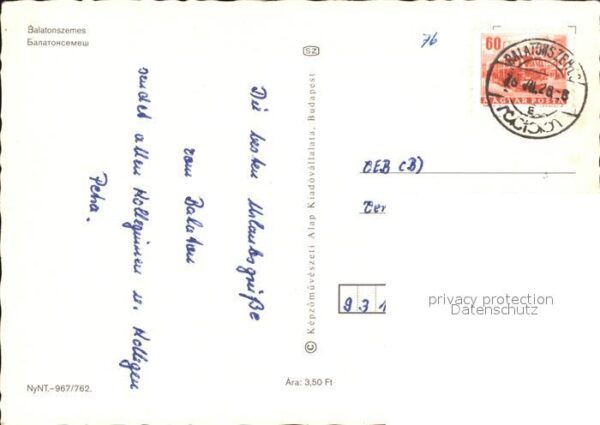 Balatonszemes
Балатонсемеш
76
60
MAGYAR POSTA
BALATONSZEMES
SZ
Die besten Urlaubsgrüße
vom Balaton
sendet allen Kolleginnen u. Kollegen
Petra.
© Képzőművészeti Alap Kiadóvállalata, Budapest
DEB (B)
931
privacy protection
Datenschutz
NyNT.–967/762.
Ára: 3,50 Ft